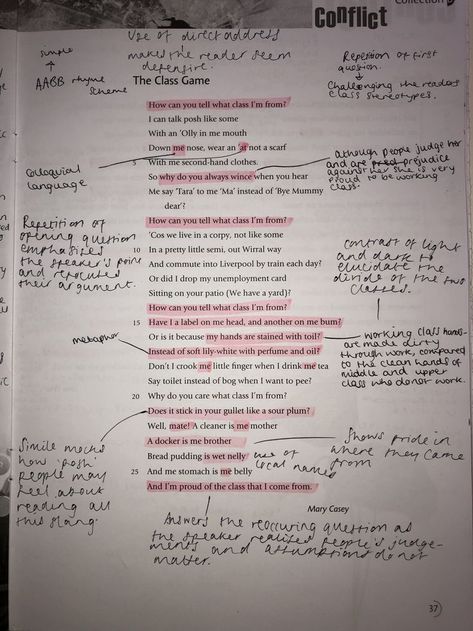 Collection
Conflict
Use of direct address
makes the reader seem
defensive.
simple
AABB rhyme
scheme
Repetition of first
question.
Challenging the readers
class stereotypes.
The Class Game
How can you tell what class I'm from?
I can talk posh like some
With an 'Olly in me mouth
Down me nose, wear an 'at not a scarf
5 With me second-hand clothes.
So why do you always wince when you hear
Me say 'Tara' to me 'Ma' instead of 'Bye Mummy
dear'?
How can you tell what class I'm from?
'Cos we live in a corpy, not like some
10 In a pretty little semi, out Wirral way
And commute into Liverpool by train each day?
Or did I drop my unemployment card
Sitting on your patio (We have a yard)?
How can you tell what class I'm from?
15 Have I a label on me head, and another on me bum?
Or is it because my hands are stained with toil?
Instead of soft lily-white with perfume and oil?
Don't I crook me little finger when I drink me tea
Say toilet instead of bog when I want to pee?
20 Why do you care what class I'm from?
Does it stick in your gullet like a sour plum?
Well, mate! A cleaner is me mother
A docker is me brother
Bread pudding is wet nelly
25 And me stomach is me belly
And I'm proud of the class that I come from.
Mary Casey
Colloquial
language
although people judge her
and are pred prejudice
against her she is very
proud to be working
class.
Repetition of
opening question
emphasizes
the speaker's point
and
their argument.
contrast of light
and dark to
elucidate the
divide of the two
classes.
metaphor
working class hands
are made dirty
through work, compared
to the clean hands of
middle and upper
class who do not work.
Simile mocks
how 'posh'
people may
feel about
reading all
this slang.
use of
local names
Shows pride in
where they came
from
Answers the reoccuring question as
the speaker realises people's judge-
ments and assumptions do not
matter.
37